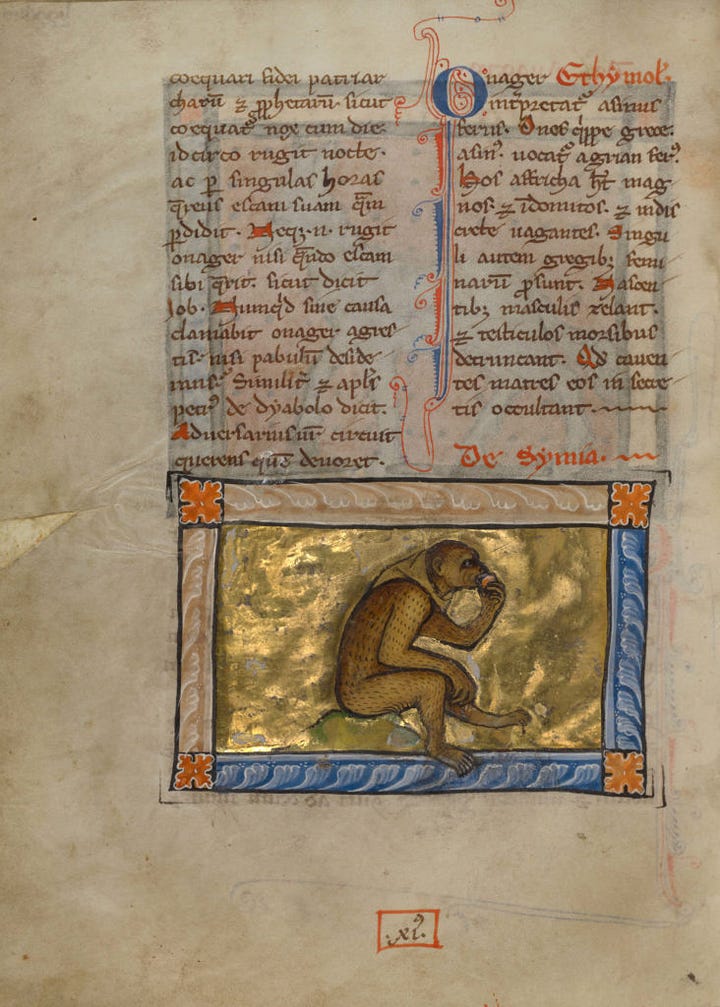 coequari fidei patriar
charū ⁊ ꝓphetarū sicut
coequat᷒ nox cum die
idcirco rugit nocte.
ac ꝑ singulas horas
q̄rens escam suam q̄m
ꝑdidit. Neqꝫ .n. rugit
onager nisi q̄ndo escam
sibi q̄rit. sicut dicit
Job. Numq̇d sine causa
clamabit onager agres
tis. nisi pabulū deside
rans. Similit᷒ ⁊ apl̄s
petr᷒ de dyabolo dicit.
Aduersarius circuit
querens quē deuoret.
Onager Ethymol.
int̄pretat᷒ asinus
ferus. Onos q̇ppe grece.
asin᷒. uocat᷒ agrian fer᷒.
Hos affricha hт̄ mag
nos. ⁊ īdomitos. ⁊ indis
crete uagantes. Singu
li autem gregibꝫ femi
narū p̄sunt. Nascen
tibꝫ masculis zelant.
⁊ testiculos morsibus
detruncant. Qd̄ cauen
tes matres eos in secre
tis occultant.
De Symia.
.xi᷒.